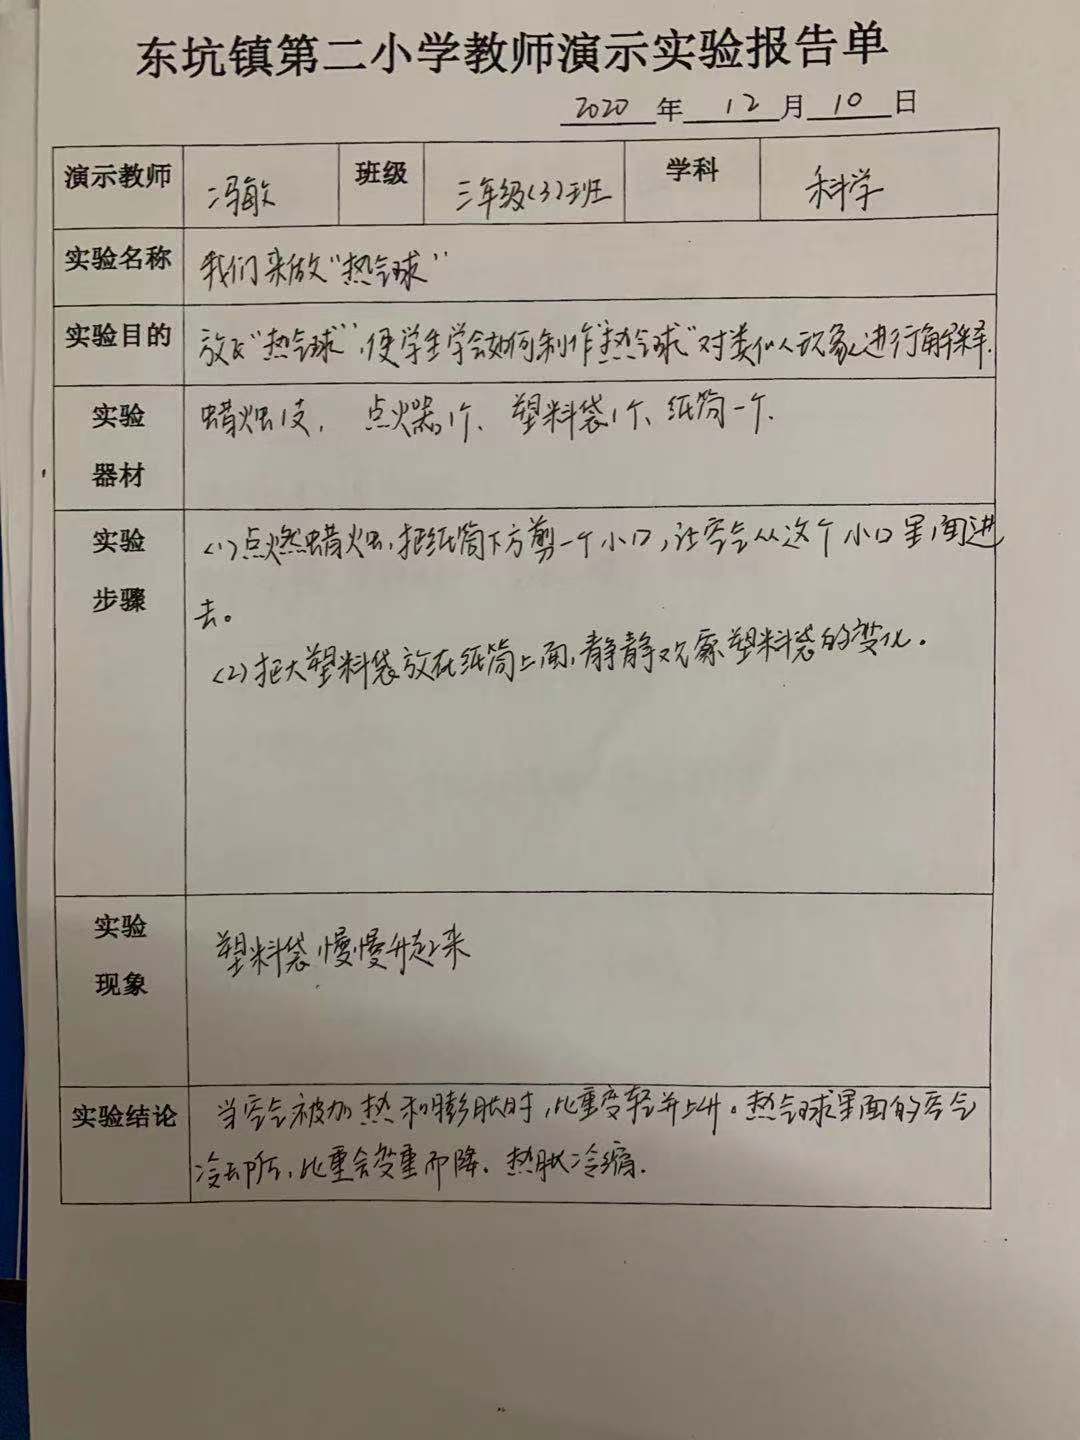 东坑镇第二小学教师演示实验报告单
2020 年 12 月 10 日
演示教师 冯敏 班级 三年级(3)班 学科 科学
实验名称 我们来做“热气球”
实验目的 放飞“热气球”,使学生学会如何制作“热气球”对类似人现象进行解释.
实验 蜡烛1支, 点火器1个、塑料袋1个、纸筒一个.
器材
实验 (1)点燃蜡烛,把纸筒下方剪一个小口,让空气从这个小口里面进
步骤 去。
(2)把大塑料袋放在纸筒上面,静静观察塑料袋的变化.
实验 塑料袋慢慢升起来
现象
实验结论 当空气被加热和膨胀时,比重变轻并上升。热气球里面的空气
冷却后,比重会变重而降.热胀冷缩.